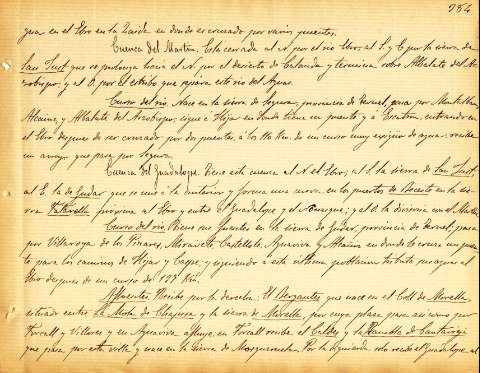 284
gua en el Ebro en la Zaida en donde es cruzado por varios puentes.
Cuenca del Martín. Está cerrada al N. por el río Ebro; al S. y E. por la sierra de
San Just que se prolonga hacia el N. por el desierto de Calanda y termina sobre Albalate del Ar-
zobispo; y al O. por el estribo que separa este río del Aguas.
Curso del río. Nace en la sierra de Segura, provincia de Teruel, pasa por Montalbán,
Alcaine, y Albalate del Arzobispo; sigue á Hijar en donde tiene un puente y á Escatrón, entrando en
el Ebro despues de ser cruzado por dos puentes, á los 110 Km. de un curso muy exiguo de agua; recibe
un arroyo que pasa por Segura.
Cuenca del Guadalope. Tiene esta cuenca al N. el Ebro; al S. la sierra de San Just;
al E. la de Gudar que se une á la anterior y forma una curva en los puertos de Beceite en la sie-
rra próxima al Ebro y entre el Guadalope y el ; y al O. la divisoria con el Martín.
Curso del río. Tiene sus fuentes en la sierra de Gudar, provincia de Teruel, pasa
por Villarroya de los Pinares, Miravete, Castellote, Aguaviva y Alcañiz en donde lo cruza un puen-
te para los caminos de Hijar y Caspe; y siguiendo á esta última poblacion tributa sus aguas al
Ebro despues de un curso de 177 Km.
Afluentes. Recibe por la derecha: El Bergantes que nace en el Coll de Morella,
situado entre La Mola de y la sierra de Morella, por cuya plaza pasa así como por
Forcall y Villores y en Aguaviva afluye; en Forcall recibe el Caldés y la de Cantavieja
que pasa por esta villa y nace en la sierra de Mosqueruela. Por la izquierda solo recibe el Guadalope al